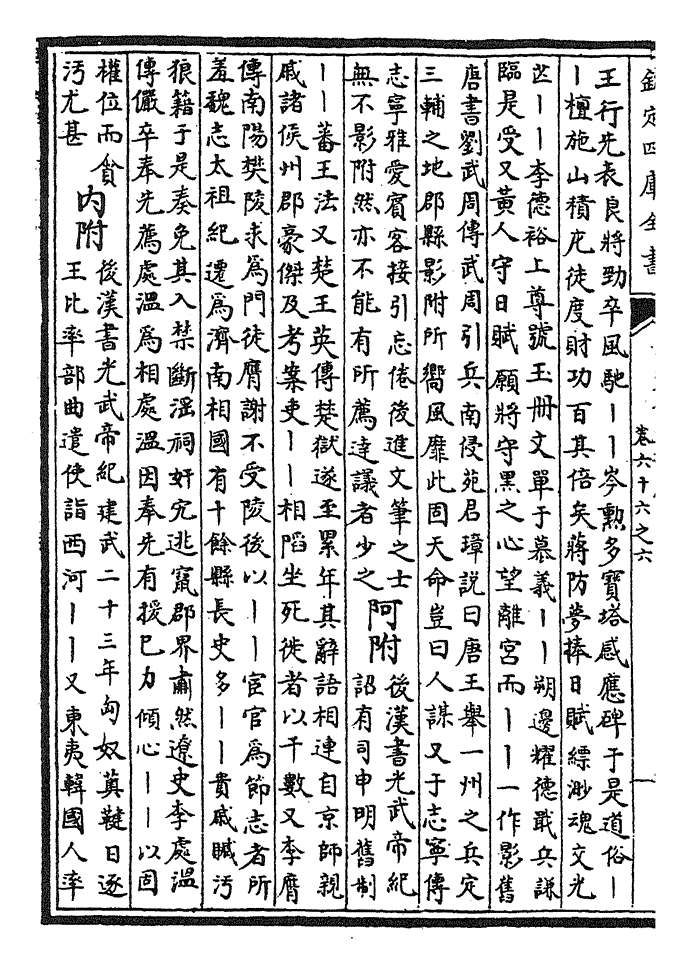 欽定四庫全書
卷六十六之六
王行先表良將勁卒風馳丨丨岑勲多寶塔感應碑于是道俗丨
丨檀施山積庀徒度財功百其倍矣蔣防夢捧日賦縹渺魂交光
芘丨丨李德裕上尊號玉冊文單于慕義丨丨朔邊耀德戢兵謙
臨是受又黃人守日賦願將守黑之心望離宮而丨丨一作影舊
唐書劉武周傳武周引兵南侵苑君璋説曰唐王舉一州之兵定
三輔之地郡縣影附所嚮風靡此固天命豈曰人謀又于志寧傳
志寧雅愛賓客接引忘倦後進文筆之士
無不影附然亦不能有所薦達議者少之
阿附
後漢書光武帝紀
詔有司申明舊制
丨丨蕃王法又楚王英傳楚獄遂至累年其辭語相連自京師親
戚諸侯州郡豪傑及考案吏丨丨相陷坐死徙者以千數又李膺
傳南陽樊陵求爲門徒膺謝不受陵後以丨丨宦官爲節志者所
羞魏志太祖紀遷爲濟南相國有十餘縣長史多丨丨貴戚贓汚
狼籍于是奏免其入禁斷淫祠奸宄逃竄郡界肅然遼史李處溫
傳儼卒奉先薦處溫爲相處溫因奉先有援已力傾心丨丨以固
權位而貪
汚尤甚
內附
後漢書光武帝紀建武二十三年匈奴薁鞬日逐
王比率部曲遣使詣西河丨丨又東夷韓國人率